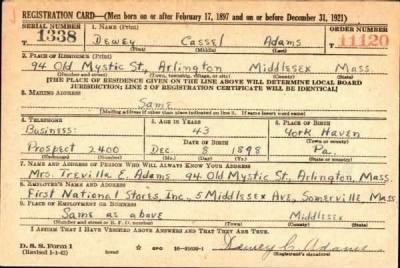 REGISTRATION CARD—(Men born on or after February 17, 1897 and on or before December 31, 1921)
SERIAL NUMBER 1. NAME (Print) ORDER NUMBER
T 1338 Dewey Cassel Adams T 11120
(First) (Middle) (Last)
2. PLACE OF RESIDENCE (Print)
94 Old Mystic St., Arlington Middlesex Mass.
(Number and street) (Town, township, village, or city) (County) (State)
[THE PLACE OF RESIDENCE GIVEN ON THE LINE ABOVE WILL DETERMINE LOCAL BOARD
JURISDICTION; LINE 2 OF REGISTRATION CERTIFICATE WILL BE IDENTICAL]
3. MAILING ADDRESS
Same
[Mailing address if other than place indicated on line 2. If same insert word same]
4. TELEPHONE 5. AGE IN YEARS 6. PLACE OF BIRTH
Business: 43 York Haven
DATE OF BIRTH (Town or county)
Prospect 2400 Dec. 8 1898 Pa.
(Exchange) (Number) (Mo.) (Day) (Yr.) (State or country)
7. NAME AND ADDRESS OF PERSON WHO WILL ALWAYS KNOW YOUR ADDRESS
Mrs. Trevilla E. Adams 94 Old Mystic St., Arlington, Mass.
8. EMPLOYER'S NAME AND ADDRESS
First National Stores, Inc., 5 Middlesex Ave, Somerville, Mass.
9. PLACE OF EMPLOYMENT OR BUSINESS
Same as above Middlesex
(Number and street or R. F. D. number) (Town) (County) (State)
I AFFIRM THAT I HAVE VERIFIED ABOVE ANSWERS AND THAT THEY ARE TRUE.
D. S. S. Form 1 GPO Dewey C. Adams
(Revised 1-1-42) (Registrant's signature)